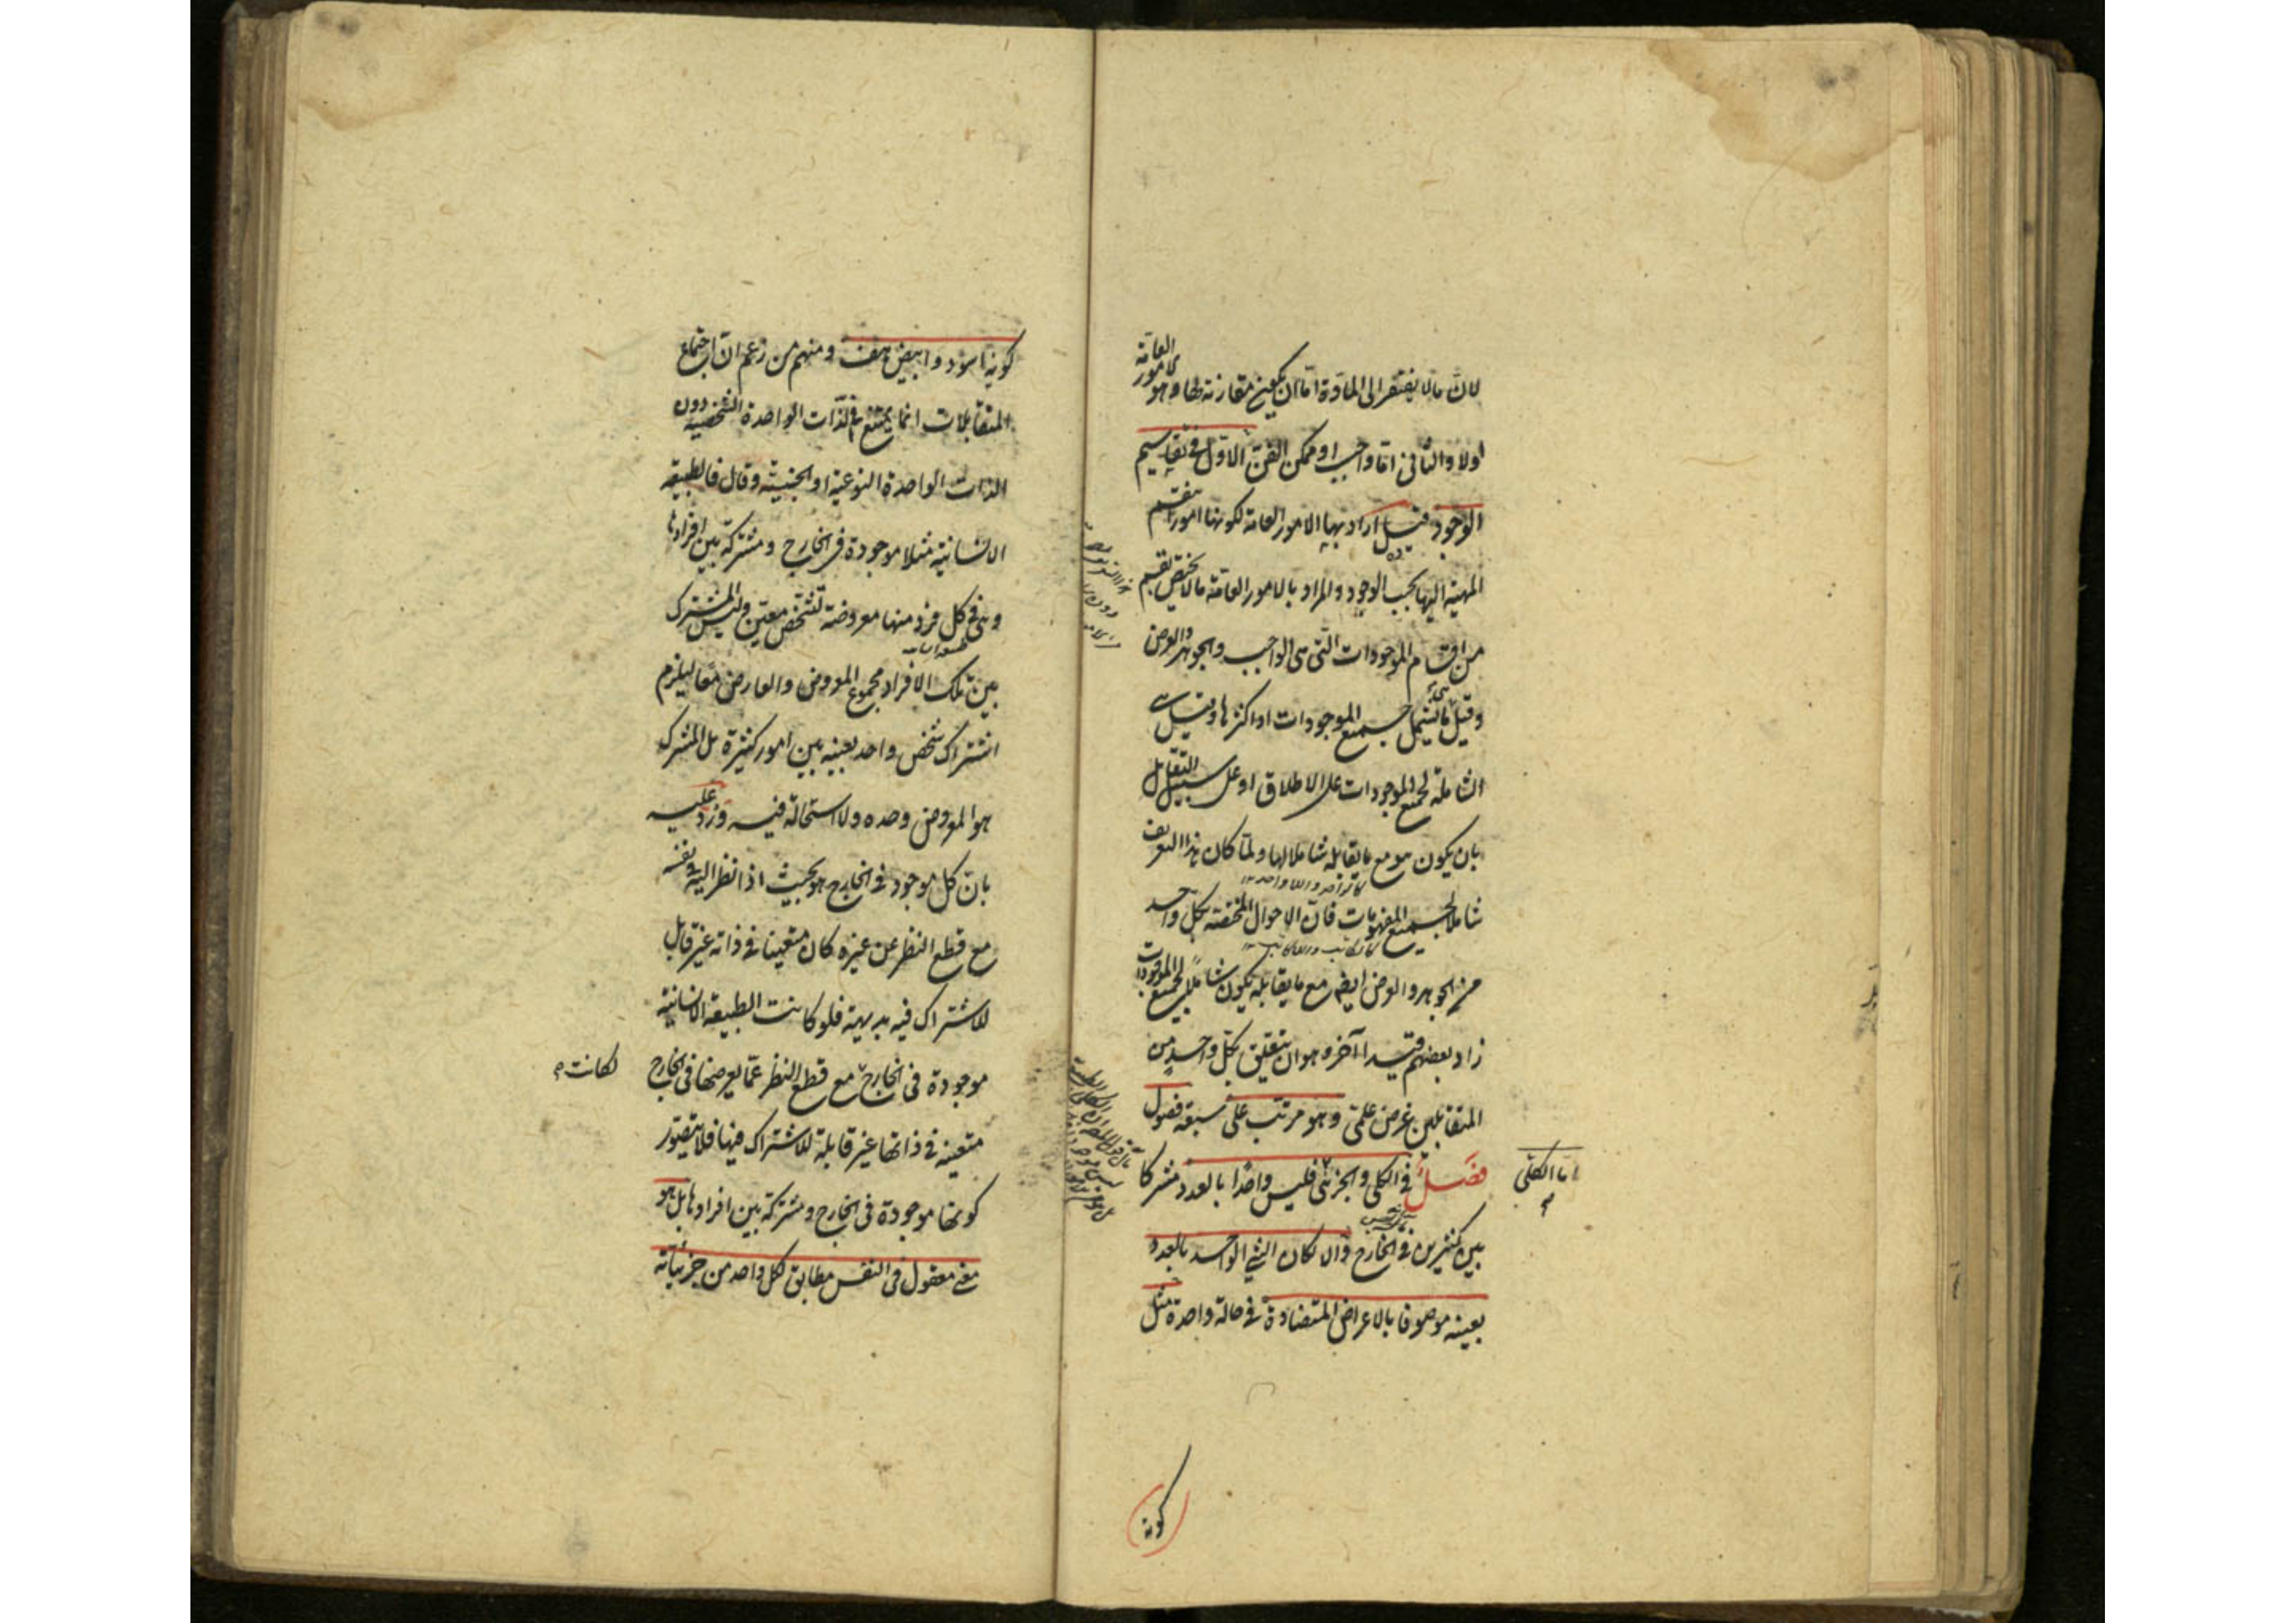 لان ما لا يفتقر الى المادة اما ان يكون مقارنة لها وهو الامور العامة
اولا والثاني اما واجب او ممكن الفن الاول في تقاسيم
الوجود قيل اراد بها الامور العامة لكونها امورا تنقسم
المهية اليها بحسب الوجود والمراد بالامور العامة ما لا يختص بقسم
من اقسام الموجودات التى هى الواجب والجوهر والعرض
وقيل ما يشمل جميع الموجودات او اكثرها وقيل هي
الشاملة لجميع الموجودات على الاطلاق او على سبيل التقابل
بان يكون هو مع ما يقابله شاملا لها ولما كان هذا التعريف
شاملا لجميع المفهومات فان الاحوال المختصة بكل واحد
من الجوهر والعرض ايضا مع ما يقابله يكون شاملا لجميع الموجودات
زاد بعضهم قيدا آخر وهو ان يتعلق بكل واحد من
المتقابلين غرض علمى وهو مرتب على سبعة فصول
فصل في الكلى والجزئى فليس واحدا بالعدد مشتركا
اما الكلى
بين كثيرين في الخارج والا لكان الشئ الواحد بالعدد
بعينه موصوفا بالاعراض المتضادة في حالة واحدة مثل
كونه
كونه اسود وابيض هف ومنهم من زعم ان اجتماع
المتقابلات انما يمتنع في الذات الواحدة الشخصية دون
الذات الواحدة النوعية او الجنسية وقال فالطبيعة
الانسانية مثلا موجودة في الخارج ومشتركة بين افرادها
وهى في كل فرد منها معروضة لتشخص معين وليس المشترك
بين تلك الافراد مجموع المعروض والعارض معا ليلزم
اشتراك شخص واحد بعينه بين امور كثيرة بل المشترك
هو المعروض وحده ولا استحالة فيه ورد عليه
بان كل موجود في الخارج هو بحيث اذا نظر اليه في نفسه
مع قطع النظر عن غيره كان متعينا في ذاته غير قابل
للاشتراك فيه بديهة فلو كانت الطبيعة الانسانية
موجودة فى الخارج مع قطع النظر عما يعرضها فى الخارج
لكانت
متعينة في ذاتها غير قابلة للاشتراك فيها فلا يتصور
كونها موجودة فى الخارج ومشتركة بين افرادها بل هو
معنى معقول فى النفس مطابق لكل واحد من جزئياته